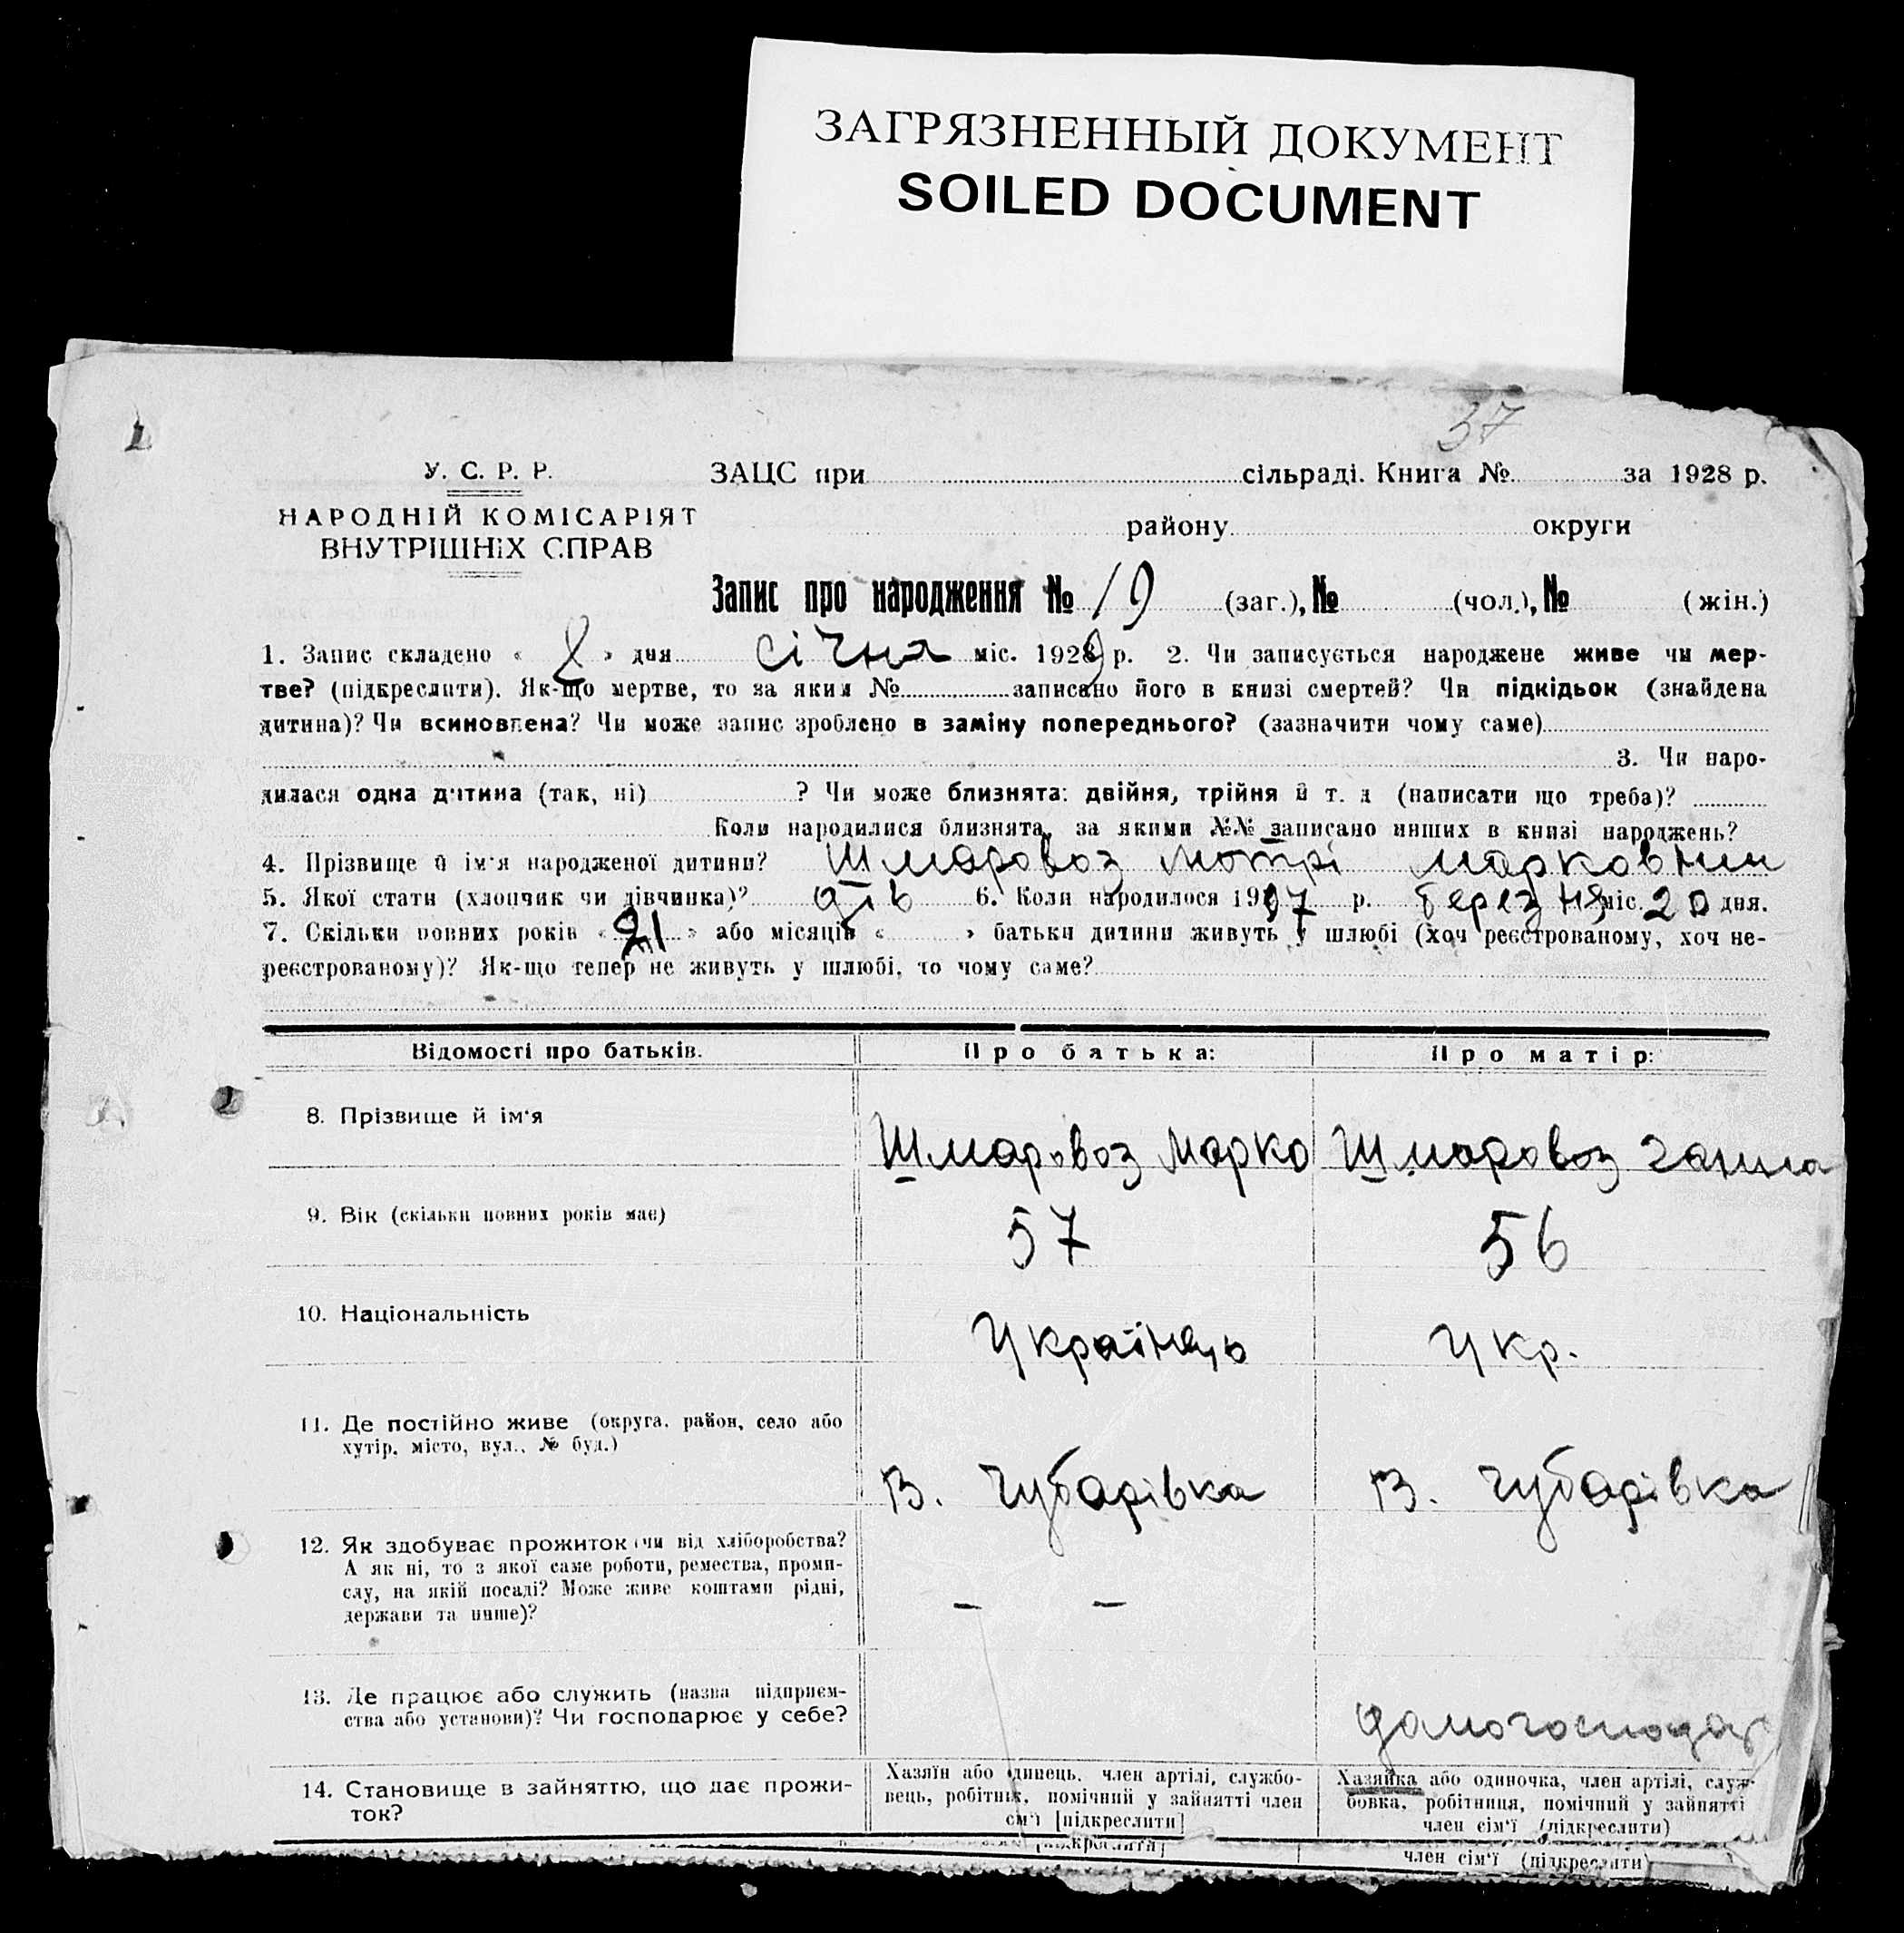 ЗАГРЯЗНЕННЫЙ ДОКУМЕНТ
SOILED DOCUMENT
37
У. С. Р. Р.
ЗАЦС при сільраді. Книга № за 1928 р.
НАРОДНІЙ КОМІСАРІЯТ
ВНУТРІШНІХ СПРАВ
району округи
Запис про народження № 19 (заг.), № (чол.), № (жін.)
1. Запис складено « 8 » дня січня міс. 1929 р. 2. Чи записується народжене живе чи мер-
тве? (підкреслити). Як-що мертве, то за яким № записано його в книзі смертей? Чи підкідьок (знайдена
дитина)? Чи всиновлена? Чи може запис зроблено в заміну попереднього? (зазначити чому саме)
3. Чи наро-
дилася одна дитина (так, ні) ? Чи може близнята: двійня, трійня й т. д (написати що треба)?
Коли народилися близнята, за якими №№ записано инших в книзі народжень?
4. Прізвище й ім'я народженої дитини? Шмаровоз Мотрі Марковни
5. Якої стати (хлопчик чи дівчинка)? дів 6. Коли народилося 1907 р. березня міс. 20 дня.
7. Скільки повних років « 21 » або місяців « » батьки дитини живуть у шлюбі (хоч реєстрованому, хоч не-
реєстрованому)? Як-що тепер не живуть у шлюбі, то чому саме?
Відомості про батьків. Про батька: Про матір:
8. Прізвище й ім'я
Шмаровоз Марко Шмаровоз Ганна
9. Вік (скільки повних років має) 57 56
10. Національність Українець Укр.
11. Де постійно живе (округа, район, село або
хутір, місто, вул., № буд.)
В. Губарівка В. Губарівка
12. Як здобуває прожиток (чи від хліборобства?
А як ні, то з якої саме роботи, ремества, проми-
слу, на якій посаді? Може живе коштами рідні,
держави та инше)? — —
13. Де працює або служить (назва підприєм-
ства або установи)? Чи господарює у себе? домогосподар
14. Становище в зайняттю, що дає прожи-
ток?
Хазяїн або одинець, член артілі, службо-
вець, робітник, помічний у зайнятті член
сім'ї [підкреслити]
Хазяйка або одиночка, член артілі, служ-
бовка, робітниця, помічний у зайнятті
член сім'ї (підкреслити)
[підкреслити]
член сім'ї (підкреслити)